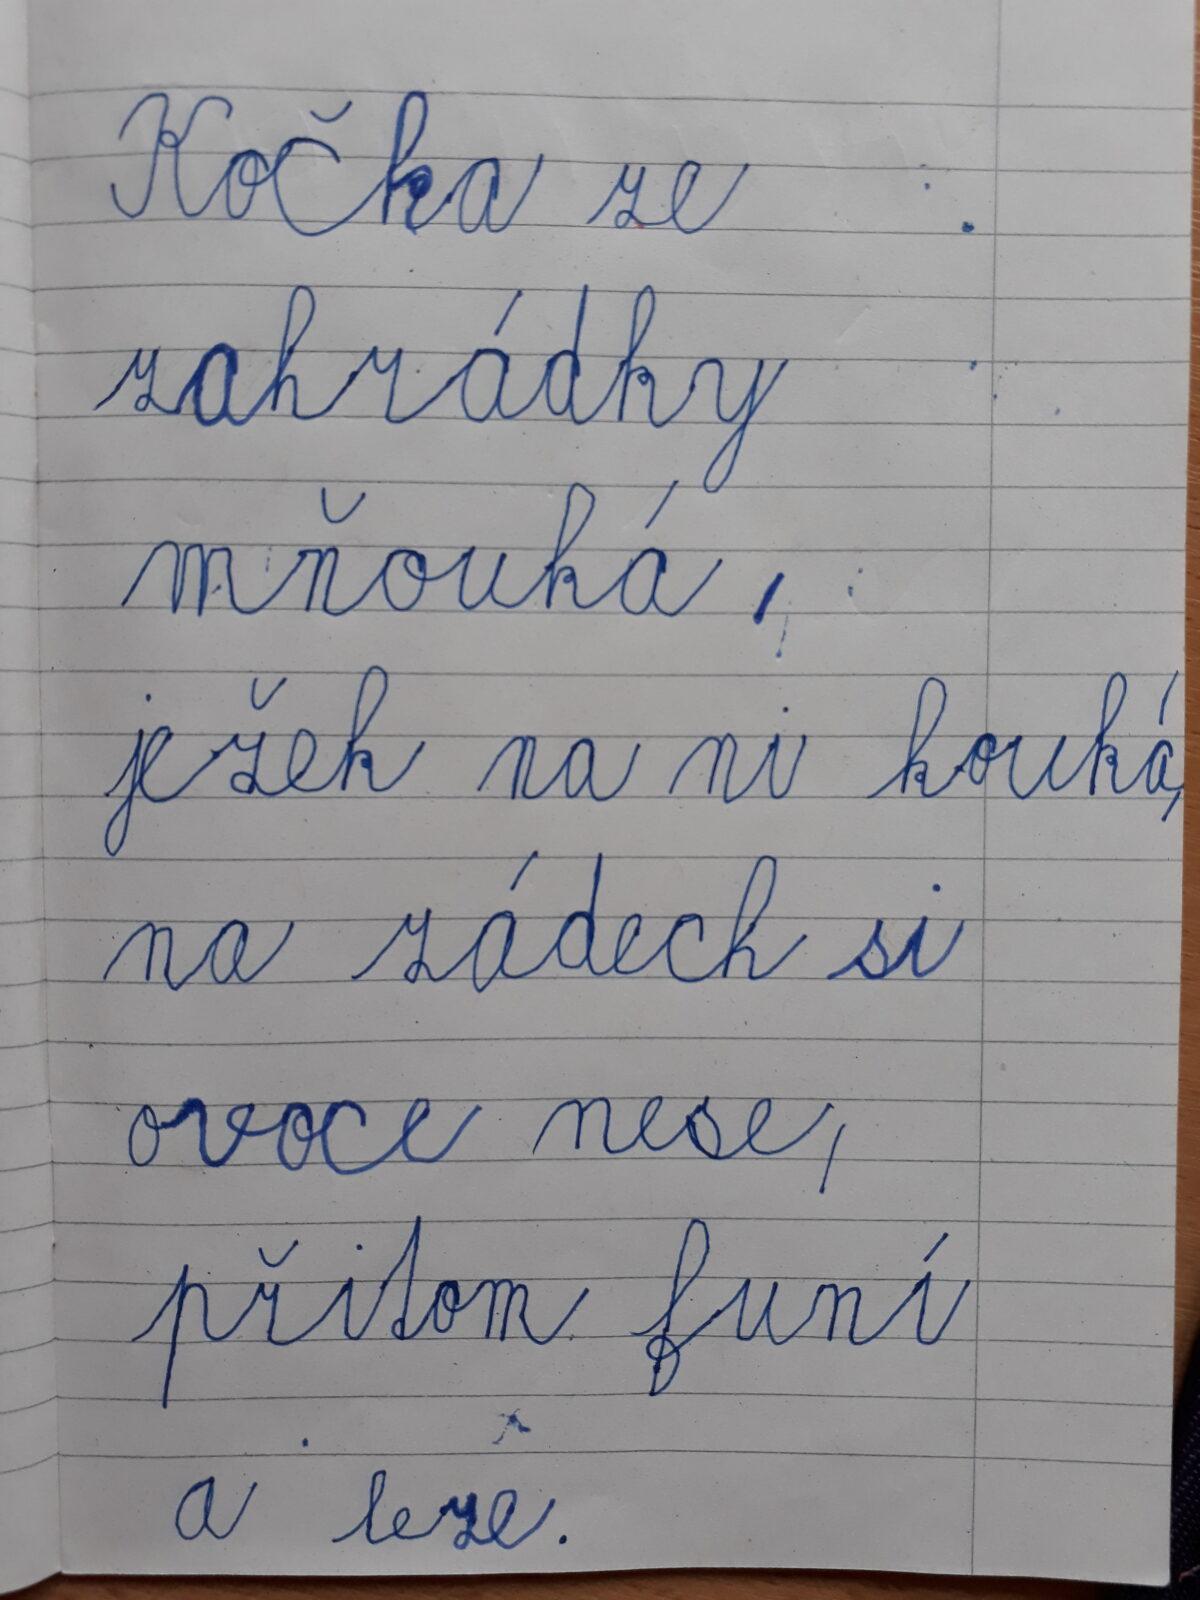 Kočka ze
zahrádky
mňouká,
ježek na ni kouká,
na zádech si
ovoce nese,
přitom funí
a leze.